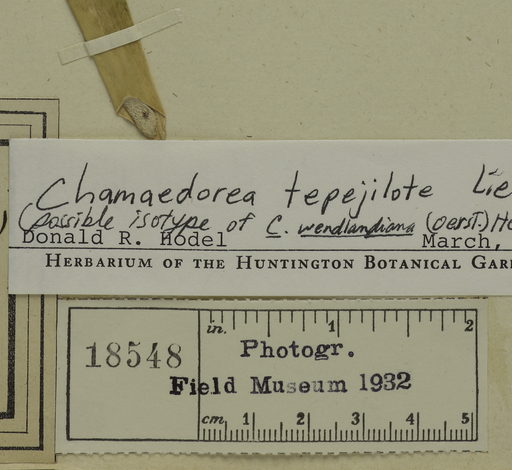 Chamaedorea tepejilote Lie
(possible isotype of C. wendlandiana (Oerst.) He
Donald R. Hodel March,
HERBARIUM OF THE HUNTINGTON BOTANICAL GAR
in. 1 2
18548 Photogr.
Field Museum 1932
cm 1 2 3 4 5